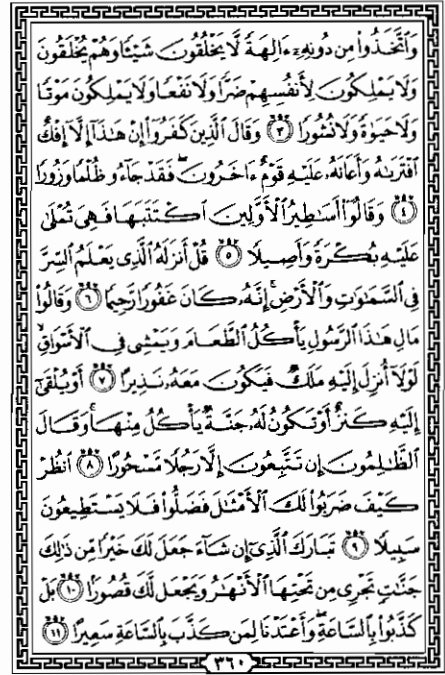 وَٱتَّخَذُوا۟ مِن دُونِهِۦٓ ءَالِهَةً لَّا يَخْلُقُونَ شَيْـًٔا وَهُمْ يُخْلَقُونَ
وَلَا يَمْلِكُونَ لِأَنفُسِهِمْ ضَرًّا وَلَا نَفْعًا وَلَا يَمْلِكُونَ مَوْتًا
وَلَا حَيَوٰةً وَلَا نُشُورًا ٣ وَقَالَ ٱلَّذِينَ كَفَرُوٓا۟ إِنْ هَـٰذَآ إِلَّآ إِفْكٌ
ٱفْتَرَىٰهُ وَأَعَانَهُۥ عَلَيْهِ قَوْمٌ ءَاخَرُونَ ۖ فَقَدْ جَآءُو ظُلْمًا وَزُورًا
٤ وَقَالُوٓا۟ أَسَـٰطِيرُ ٱلْأَوَّلِينَ ٱكْتَتَبَهَا فَهِىَ تُمْلَىٰ
عَلَيْهِ بُكْرَةً وَأَصِيلًا ٥ قُلْ أَنزَلَهُ ٱلَّذِى يَعْلَمُ ٱلسِّرَّ
فِى ٱلسَّمَـٰوَٰتِ وَٱلْأَرْضِ ۚ إِنَّهُۥ كَانَ غَفُورًا رَّحِيمًا ٦ وَقَالُوا۟
مَالِ هَـٰذَا ٱلرَّسُولِ يَأْكُلُ ٱلطَّعَامَ وَيَمْشِى فِى ٱلْأَسْوَاقِ ۙ
لَوْلَآ أُنزِلَ إِلَيْهِ مَلَكٌ فَيَكُونَ مَعَهُۥ نَذِيرًا ٧ أَوْ يُلْقَىٰٓ
إِلَيْهِ كَنزٌ أَوْ تَكُونُ لَهُۥ جَنَّةٌ يَأْكُلُ مِنْهَا ۚ وَقَالَ
ٱلظَّـٰلِمُونَ إِن تَتَّبِعُونَ إِلَّا رَجُلًا مَّسْحُورًا ٨ ٱنظُرْ
كَيْفَ ضَرَبُوا۟ لَكَ ٱلْأَمْثَـٰلَ فَضَلُّوا۟ فَلَا يَسْتَطِيعُونَ
سَبِيلًا ٩ تَبَارَكَ ٱلَّذِىٓ إِن شَآءَ جَعَلَ لَكَ خَيْرًا مِّن ذَٰلِكَ
جَنَّـٰتٍ تَجْرِى مِن تَحْتِهَا ٱلْأَنْهَـٰرُ وَيَجْعَل لَّكَ قُصُورًۢا ١٠ بَلْ
كَذَّبُوا۟ بِٱلسَّاعَةِ ۖ وَأَعْتَدْنَا لِمَن كَذَّبَ بِٱلسَّاعَةِ سَعِيرًا ١١
٣٦٠